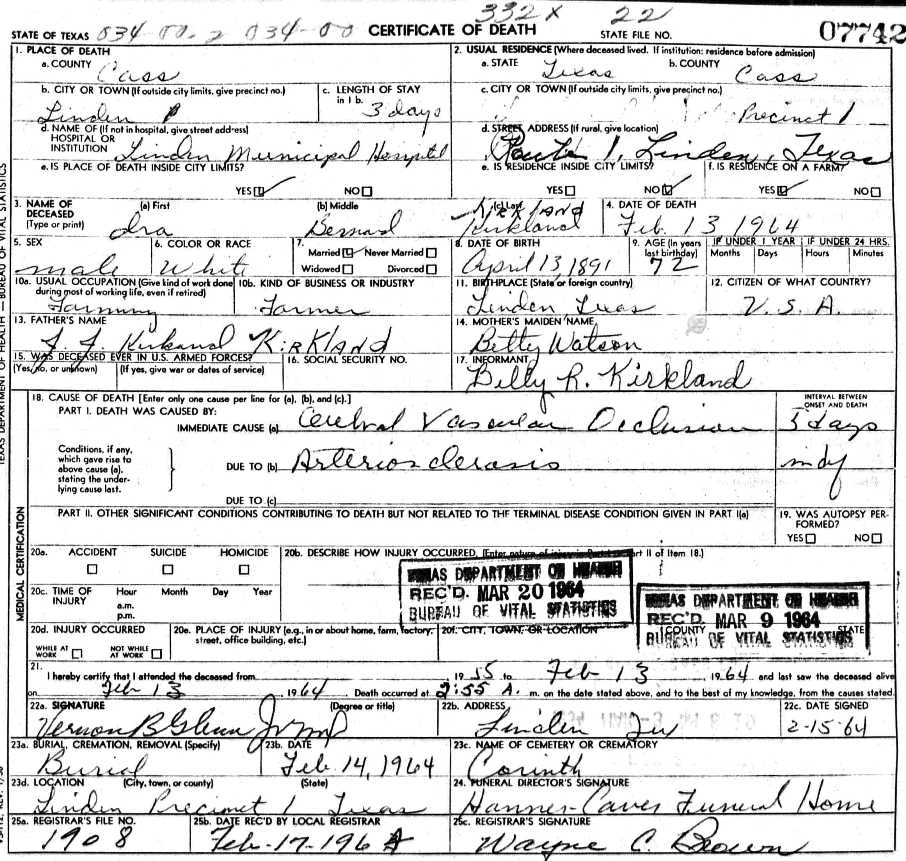 332x 22
STATE OF TEXAS 034-00-2 034-00 CERTIFICATE OF DEATH STATE FILE NO. 07742
1. PLACE OF DEATH
a. COUNTY Cass
2. USUAL RESIDENCE (Where deceased lived. If institution: residence before admission)
a. STATE Texas b. COUNTY Cass
b. CITY OR TOWN (If outside city limits, give precinct no.) Linden
c. LENGTH OF STAY in 1 b. 3 days
c. CITY OR TOWN (If outside city limits, give precinct no.) Precinct 1
d. NAME OF (If not in hospital, give street address) HOSPITAL OR INSTITUTION Linden Municipal Hospital
d. STREET ADDRESS (If rural, give location) Route 1, Linden, Texas
e. IS PLACE OF DEATH INSIDE CITY LIMITS?
YES NO
e. IS RESIDENCE INSIDE CITY LIMITS?
YES NO
f. IS RESIDENCE ON A FARM?
YES NO
3. NAME OF DECEASED (Type or print)
(a) First Ira
(b) Middle Bernard
(c) Last KIRKLAND Kirkland
4. DATE OF DEATH Feb. 13 1964
5. SEX male
6. COLOR OR RACE White
7. Married Never Married
Widowed Divorced
8. DATE OF BIRTH April 13, 1891
9. AGE (In years last birthday) 72
IF UNDER 1 YEAR Months Days
IF UNDER 24 HRS. Hours Minutes
10a. USUAL OCCUPATION (Give kind of work done during most of working life, even if retired) Farming
10b. KIND OF BUSINESS OR INDUSTRY Farmer
11. BIRTHPLACE (State or foreign country) Linden Texas
12. CITIZEN OF WHAT COUNTRY? U.S.A.
13. FATHER'S NAME J. J. Kirkland KIRKLAND
14. MOTHER'S MAIDEN NAME Betty Watson
15. WAS DECEASED EVER IN U.S. ARMED FORCES?
(Yes, no, or unknown) (If yes, give war or dates of service)
16. SOCIAL SECURITY NO.
17. INFORMANT Billy R. Kirkland
18. CAUSE OF DEATH [Enter only one cause per line for (a), (b), and (c).]
INTERVAL BETWEEN ONSET AND DEATH
PART I. DEATH WAS CAUSED BY:
IMMEDIATE CAUSE (a) Cerebral Vascular Occlusion days
Conditions, if any, which gave rise to above cause (a), stating the underlying cause last.
DUE TO (b) Arteriosclerosis
DUE TO (c)
PART II. OTHER SIGNIFICANT CONDITIONS CONTRIBUTING TO DEATH BUT NOT RELATED TO THE TERMINAL DISEASE CONDITION GIVEN IN PART I(a)
19. WAS AUTOPSY PERFORMED?
YES NO
20a. ACCIDENT SUICIDE HOMICIDE
20b. DESCRIBE HOW INJURY OCCURRED. (Enter nature of injury in Part I or Part II of Item 18.)
20c. TIME OF INJURY Hour a.m. p.m. Month Day Year
TEXAS DEPARTMENT OF HEALTH
REC'D. MAR 20 1964
BUREAU OF VITAL STATISTICS
TEXAS DEPARTMENT OF HEALTH
REC'D MAR 9 1964
BUREAU OF VITAL STATISTICS
20d. INJURY OCCURRED
WHILE AT WORK NOT WHILE AT WORK
20e. PLACE OF INJURY (e.g., in or about home, farm, factory, street, office building, etc.)
20f. CITY, TOWN, OR LOCATION COUNTY STATE
21. I hereby certify that I attended the deceased from 1955 to Feb 13 1964 and last saw the deceased alive
on Feb 13 1964 Death occurred at 2:55 A. m. on the date stated above, and to the best of my knowledge, from the causes stated.
22a. SIGNATURE (Degree or title) Vernon B Glenn Jr MD
22b. ADDRESS Linden Tex
22c. DATE SIGNED 2-15-64
23a. BURIAL, CREMATION, REMOVAL (Specify) Burial
23b. DATE Feb. 14, 1964
23c. NAME OF CEMETERY OR CREMATORY Corinth
23d. LOCATION (City, town, or county) (State) Linden Precinct 1 Texas
24. FUNERAL DIRECTOR'S SIGNATURE Hanner-Caves Funeral Home
25a. REGISTRAR'S FILE NO. 1908
25b. DATE REC'D BY LOCAL REGISTRAR Feb-17-1964
25c. REGISTRAR'S SIGNATURE Wayne C. Brown
MEDICAL CERTIFICATION
TEXAS DEPARTMENT OF HEALTH — BUREAU OF VITAL STATISTICS